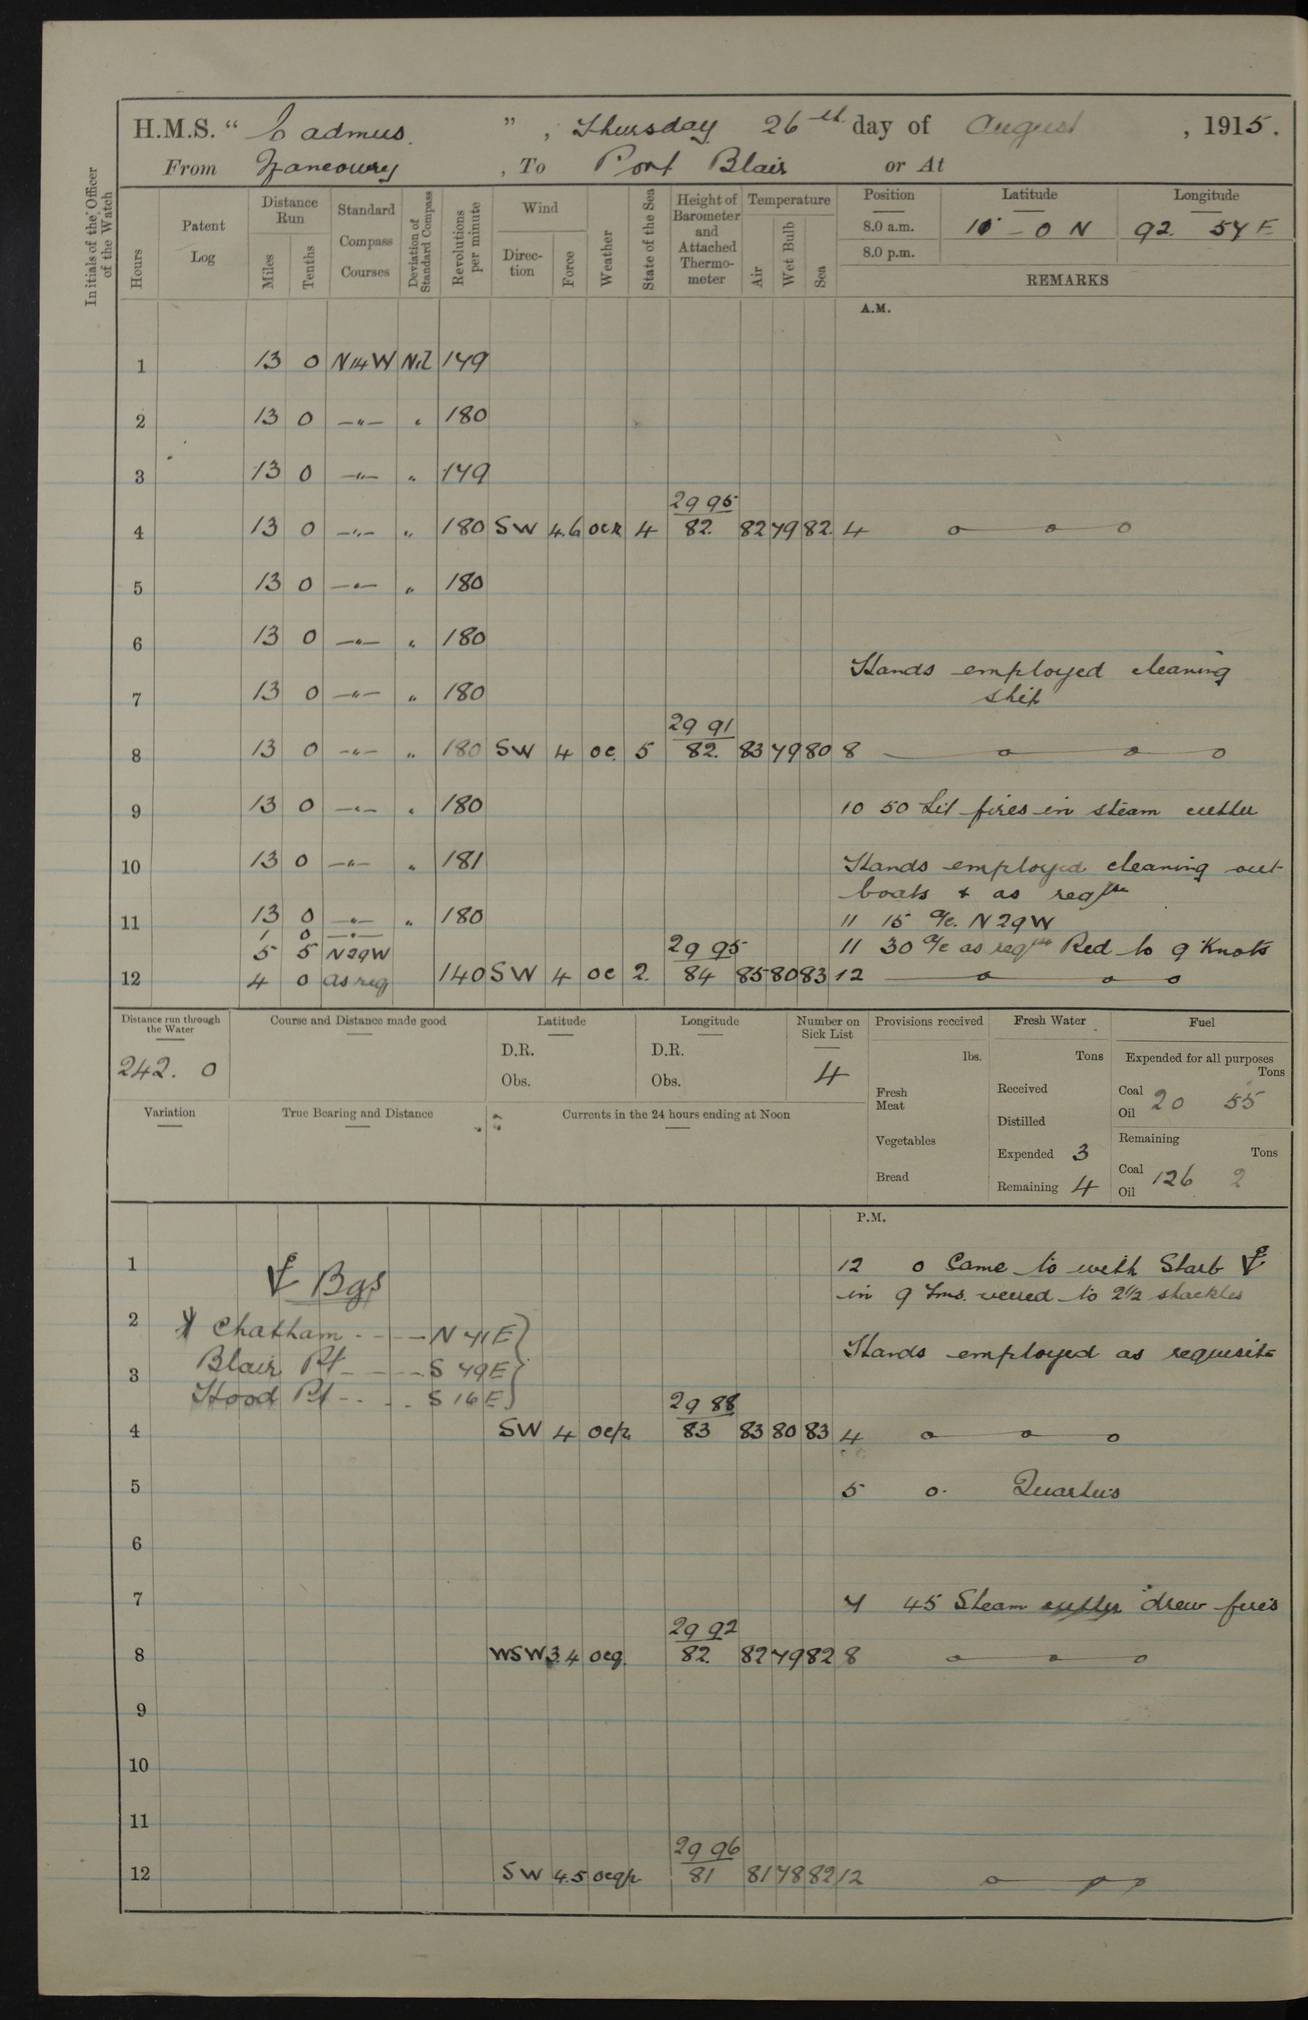 H.M.S. “ Cadmus ” , Thursday 26th day of August , 1915.
From Nancowry , To Port Blair or At
Initials of the Officer of the Watch
Hours
Patent Log
Distance Run
Miles
Tenths
Standard Compass Courses
Deviation of Standard Compass
Revolutions per minute
Wind
Direction
Force
Weather
State of the Sea
Height of Barometer and Attached Thermometer
Temperature
Air
Wet Bulb
Sea
Position Latitude Longitude
8.0 a.m. 10 - 0 N 92 54 E
8.0 p.m.
REMARKS
A.M.
1 13 0 N14W Nil 179
2 13 0 —"— " 180
3 13 0 —"— " 179
29 95
4 13 0 —"— " 180 SW 4.6 ocr 4 82 82 79 82 4 o o o
5 13 0 —"— " 180
6 13 0 —"— " 180
Hands employed cleaning
7 13 0 —"— " 180 ship
29 91
8 13 0 —"— " 180 SW 4 oc 5 82 83 79 80 8 o o o
9 13 0 —"— " 180 10 50 Lit fires in steam cutter
10 13 0 —"— " 181 Hands employed cleaning out
boats & as reqte
11 13 0 —"— " 180 11 15 a/c N29W
1 0 —"—
5 5 N29W 29 95 11 30 a/c as reqte Red to 9 Knots
12 4 0 as req 140 SW 4 oc 2 84 85 80 83 12 o o o
Distance run through the Water
242. 0
Course and Distance made good
Latitude
D.R.
Obs.
Longitude
D.R.
Obs.
Number on Sick List
4
Provisions received
lbs.
Fresh Meat
Vegetables
Bread
Fresh Water
Tons
Received
Distilled
Expended 3
Remaining 4
Fuel
Expended for all purposes
Tons
Coal 20 55
Oil
Remaining
Tons
Coal 126 2
Oil
Variation
True Bearing and Distance
Currents in the 24 hours ending at Noon
P.M.
1 12 0 Came to with Starb ⚓
⚓ Bgs in 9 fms. veered to 2½ shackles
2 Chatham - - - - N 71 E
Hands employed as requisite
3 Blair Pt - - - - S 79 E
Hood Pt - - - - S 16 E 29 88
4 SW 4 oc/r 83 83 80 83 4 o o o
5 5 0. Quarters
6
7 7 45 Steam cutter drew fires
29 92
8 WSW 3.4 ocq 82 82 79 82 8 o o o
9
10
11
29 96
12 SW 4.5 ocq/r 81 81 78 82 12